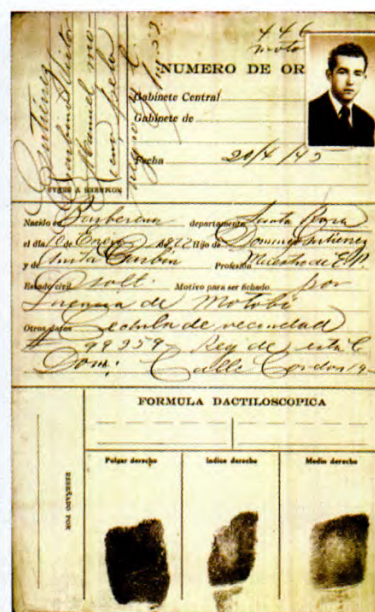 446
moto
NUMERO DE OR
Gabinete Central
Gabinete de
Fecha 20/4/45
Gutiérrez
Manuel
pelo
negro
NOMBRES Y SEÑAS
Nacido en Barberena departamento Santa Rosa
el día 10 de Enero de 1922 Hijo de Domingo Gutiérrez
y de Profesión Maestro de E.P.
Estado civil Solt. Motivo para ser fichado por
Licencia de Motobi
Otros datos Cédula de vecindad
# 99259 Reg de esta C
Dom: Calle
FORMULA DACTILOSCOPICA
RESEÑADO POR
Pulgar derecho
Indice derecho
Medio derecho